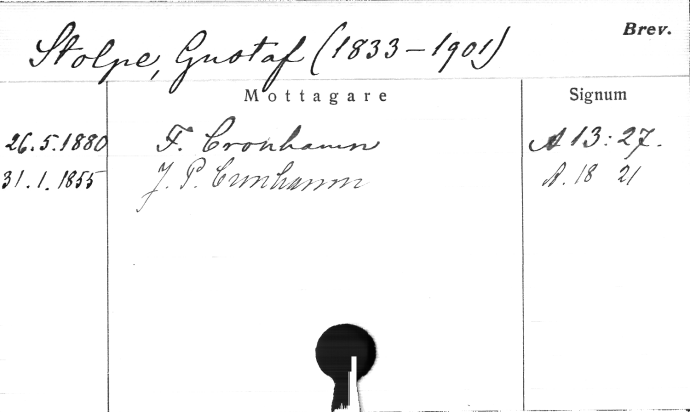 Brev.
Stolpe, Gustaf (1833-1901)
Mottagare Signum
26.5.1880 F. Cronhamn A 13:27.
31.1.1855 J. P. Cronhamn A. 18 21